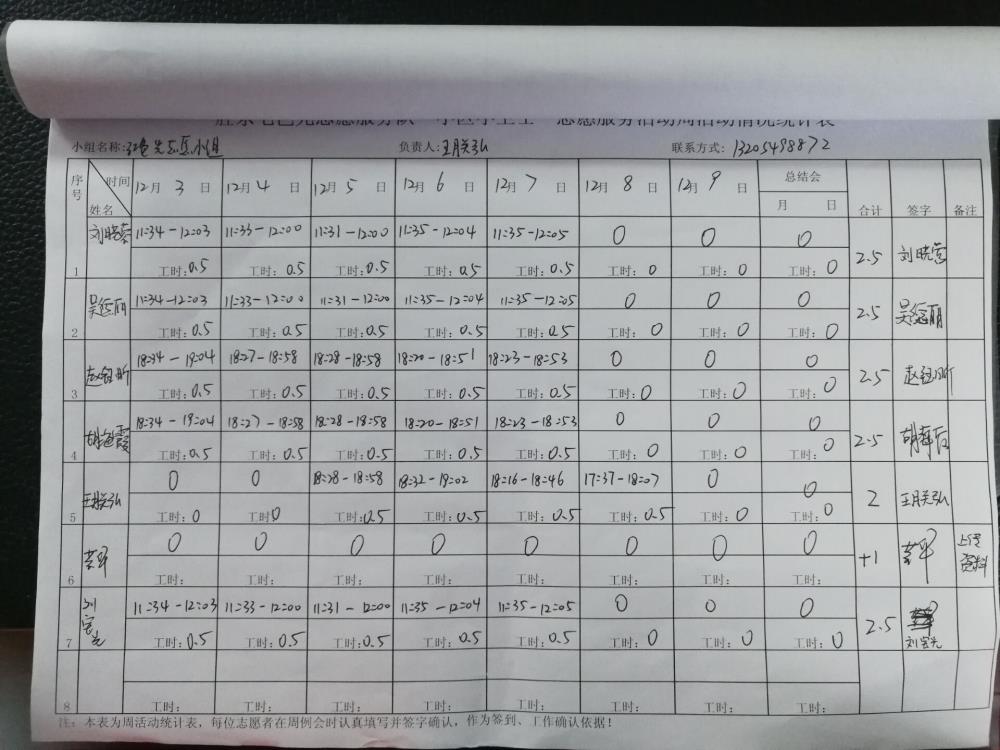 志愿服务活动周活动情况统计表
小组名称: 负责人:王月关弘 联系方式: 13205498872
序号 时间 姓名 12月3日 12月4日 12月5日 12月6日 12月7日 12月8日 12月9日 总结会 月 日 合计 签字 备注
11:34-12:03 11:33-12:00 11:31-12:00 11:35-12:04 11:35-12:05 0 0 0
1 工时:0.5 工时:0.5 工时:0.5 工时:0.5 工时:0.5 工时:0 工时:0 工时:0 2.5
11:34-12:03 11:33-12:00 11:31-12:00 11:35-12:04 11:35-12:05 0 0 0
2 工时:0.5 工时:0.5 工时:0.5 工时:0.5 工时:0.5 工时:0 工时:0 工时:0 2.5
18:34-19:04 18:27-18:58 18:28-18:58 18:20-18:51 18:23-18:53 0 0 0
3 工时:0.5 工时:0.5 工时:0.5 工时:0.5 工时:0.5 工时:0 工时:0 工时:0 2.5
18:34-19:04 18:27-18:58 18:28-18:58 18:20-18:51 18:23-18:53 0 0 0
4 工时:0.5 工时:0.5 工时:0.5 工时:0.5 工时:0.5 工时:0 工时:0 工时:0 2.5
王月关弘 0 0 18:28-18:58 18:32-19:02 18:16-18:46 17:37-18:07 0 0
5 工时:0 工时:0 工时:0.5 工时:0.5 工时:0.5 工时:0.5 工时:0 工时:0 2 王月关弘
0 0 0 0 0 0 0 0
6 工时: 工时: 工时: 工时: 工时: 工时: 工时: 工时: +1 上传资料
刘宝光 11:34-12:03 11:33-12:00 11:31-12:00 11:35-12:04 11:35-12:05 0 0 0
7 工时:0.5 工时:0.5 工时:0.5 工时:0.5 工时:0.5 工时:0 工时:0 工时:0 2.5 刘宝光
8 工时: 工时: 工时: 工时: 工时: 工时: 工时: 工时:
注:本表为周活动统计表，每位志愿者在周例会时认真填写并签字确认，作为签到、工作确认依据！